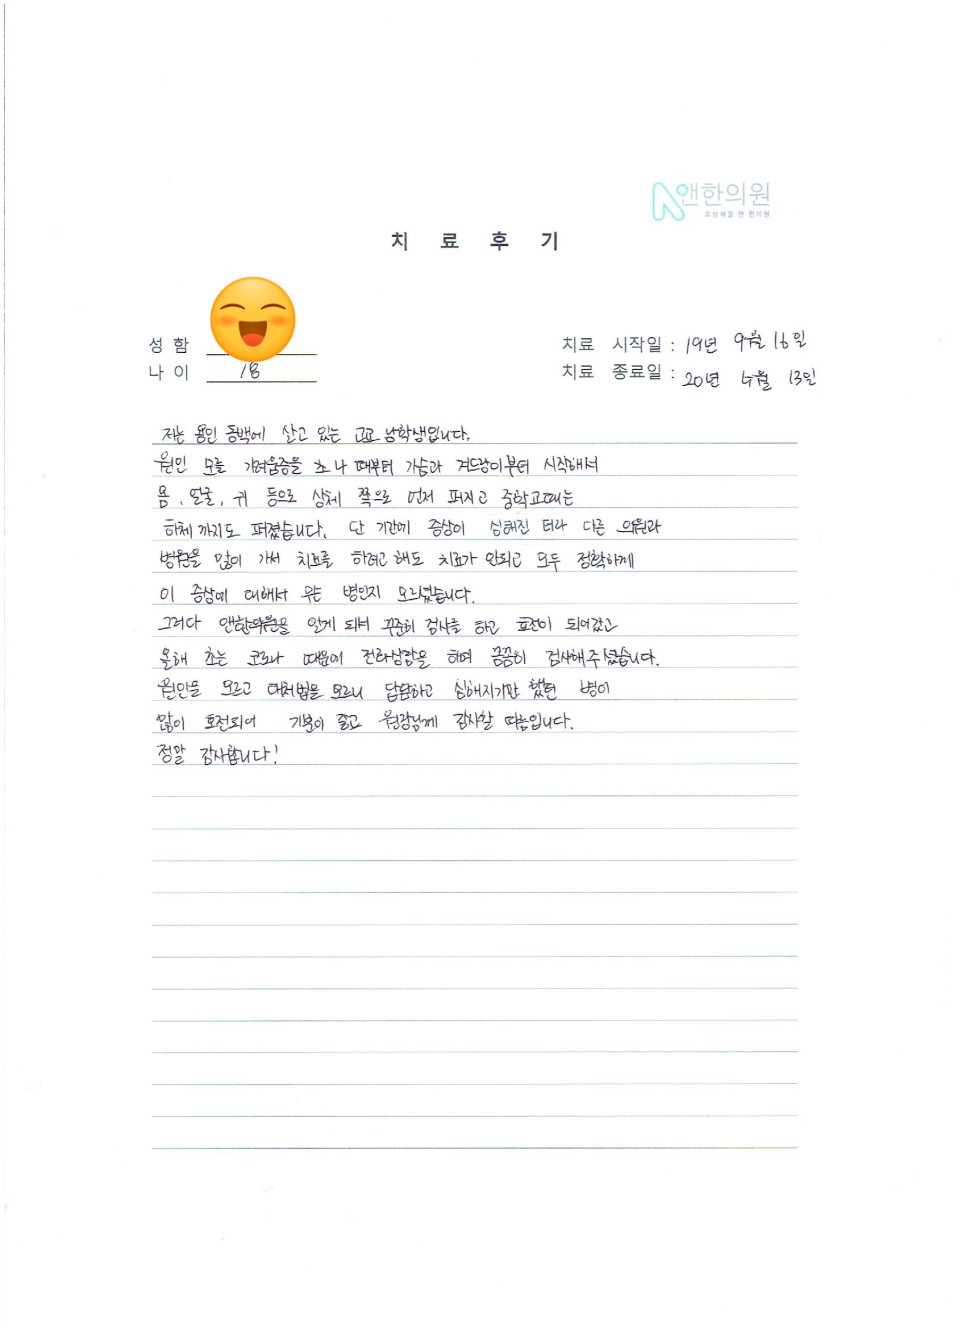 앤한의원
치 료 후 기
성 함
치료 시작일 : 19년 9월 16일
나 이 18
치료 종료일 : 20년 4월 13일
저는 용인 동백에 살고 있는 고2 남학생입니다.
원인 모를 가려움증을 초4 때부터 가슴과 겨드랑이부터 시작해서
몸, 얼굴, 귀 등으로 상체 쪽으로 먼저 퍼지고 중학교때는
하체 까지도 퍼졌습니다. 단 기간에 증상이 심해진 터라 다른 의원과
병원을 많이 가서 치료를 하려고 해도 치료가 안되고 모두 정확하게
이 증상에 대해서 무슨 병인지 모르셨습니다.
그러다 앤한의원을 알게 되서 꾸준히 검사를 하고 호전이 되어갔고
올해 초는 코로나 때문에 전화상담을 하며 꼼꼼히 검사해주셨습니다.
원인을 모르고 대처법을 모르니 답답하고 심해지기만 했던 병이
많이 호전되어 기분이 좋고 원장님께 감사할 따름입니다.
정말 감사합니다!